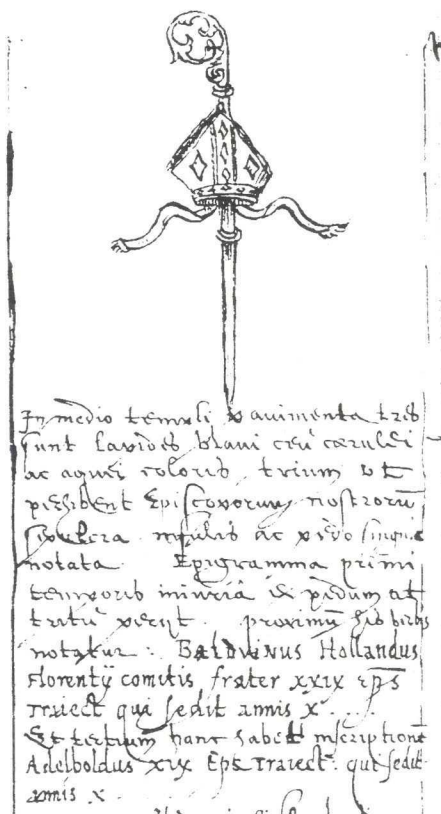 In medio templi pavimenta tres
sunt lapides blavi ceu caerulei
ac aquei coloris trium ut
perhibent Episcoporum nostrorū
sepulcra insulis ac pedo
notata. Epigramma primi
temporis iniuriâ et pedum at
tritū perijt. proximū his verbis
notatur. BALDVINUS Hollandus
Florentij comitis frater XXIX eps
Traiect qui sedit annis X . . .
Et tertium hanc habet inscriptionē
Adelboldus XIX Eps Traiect. qui sedit
annis X